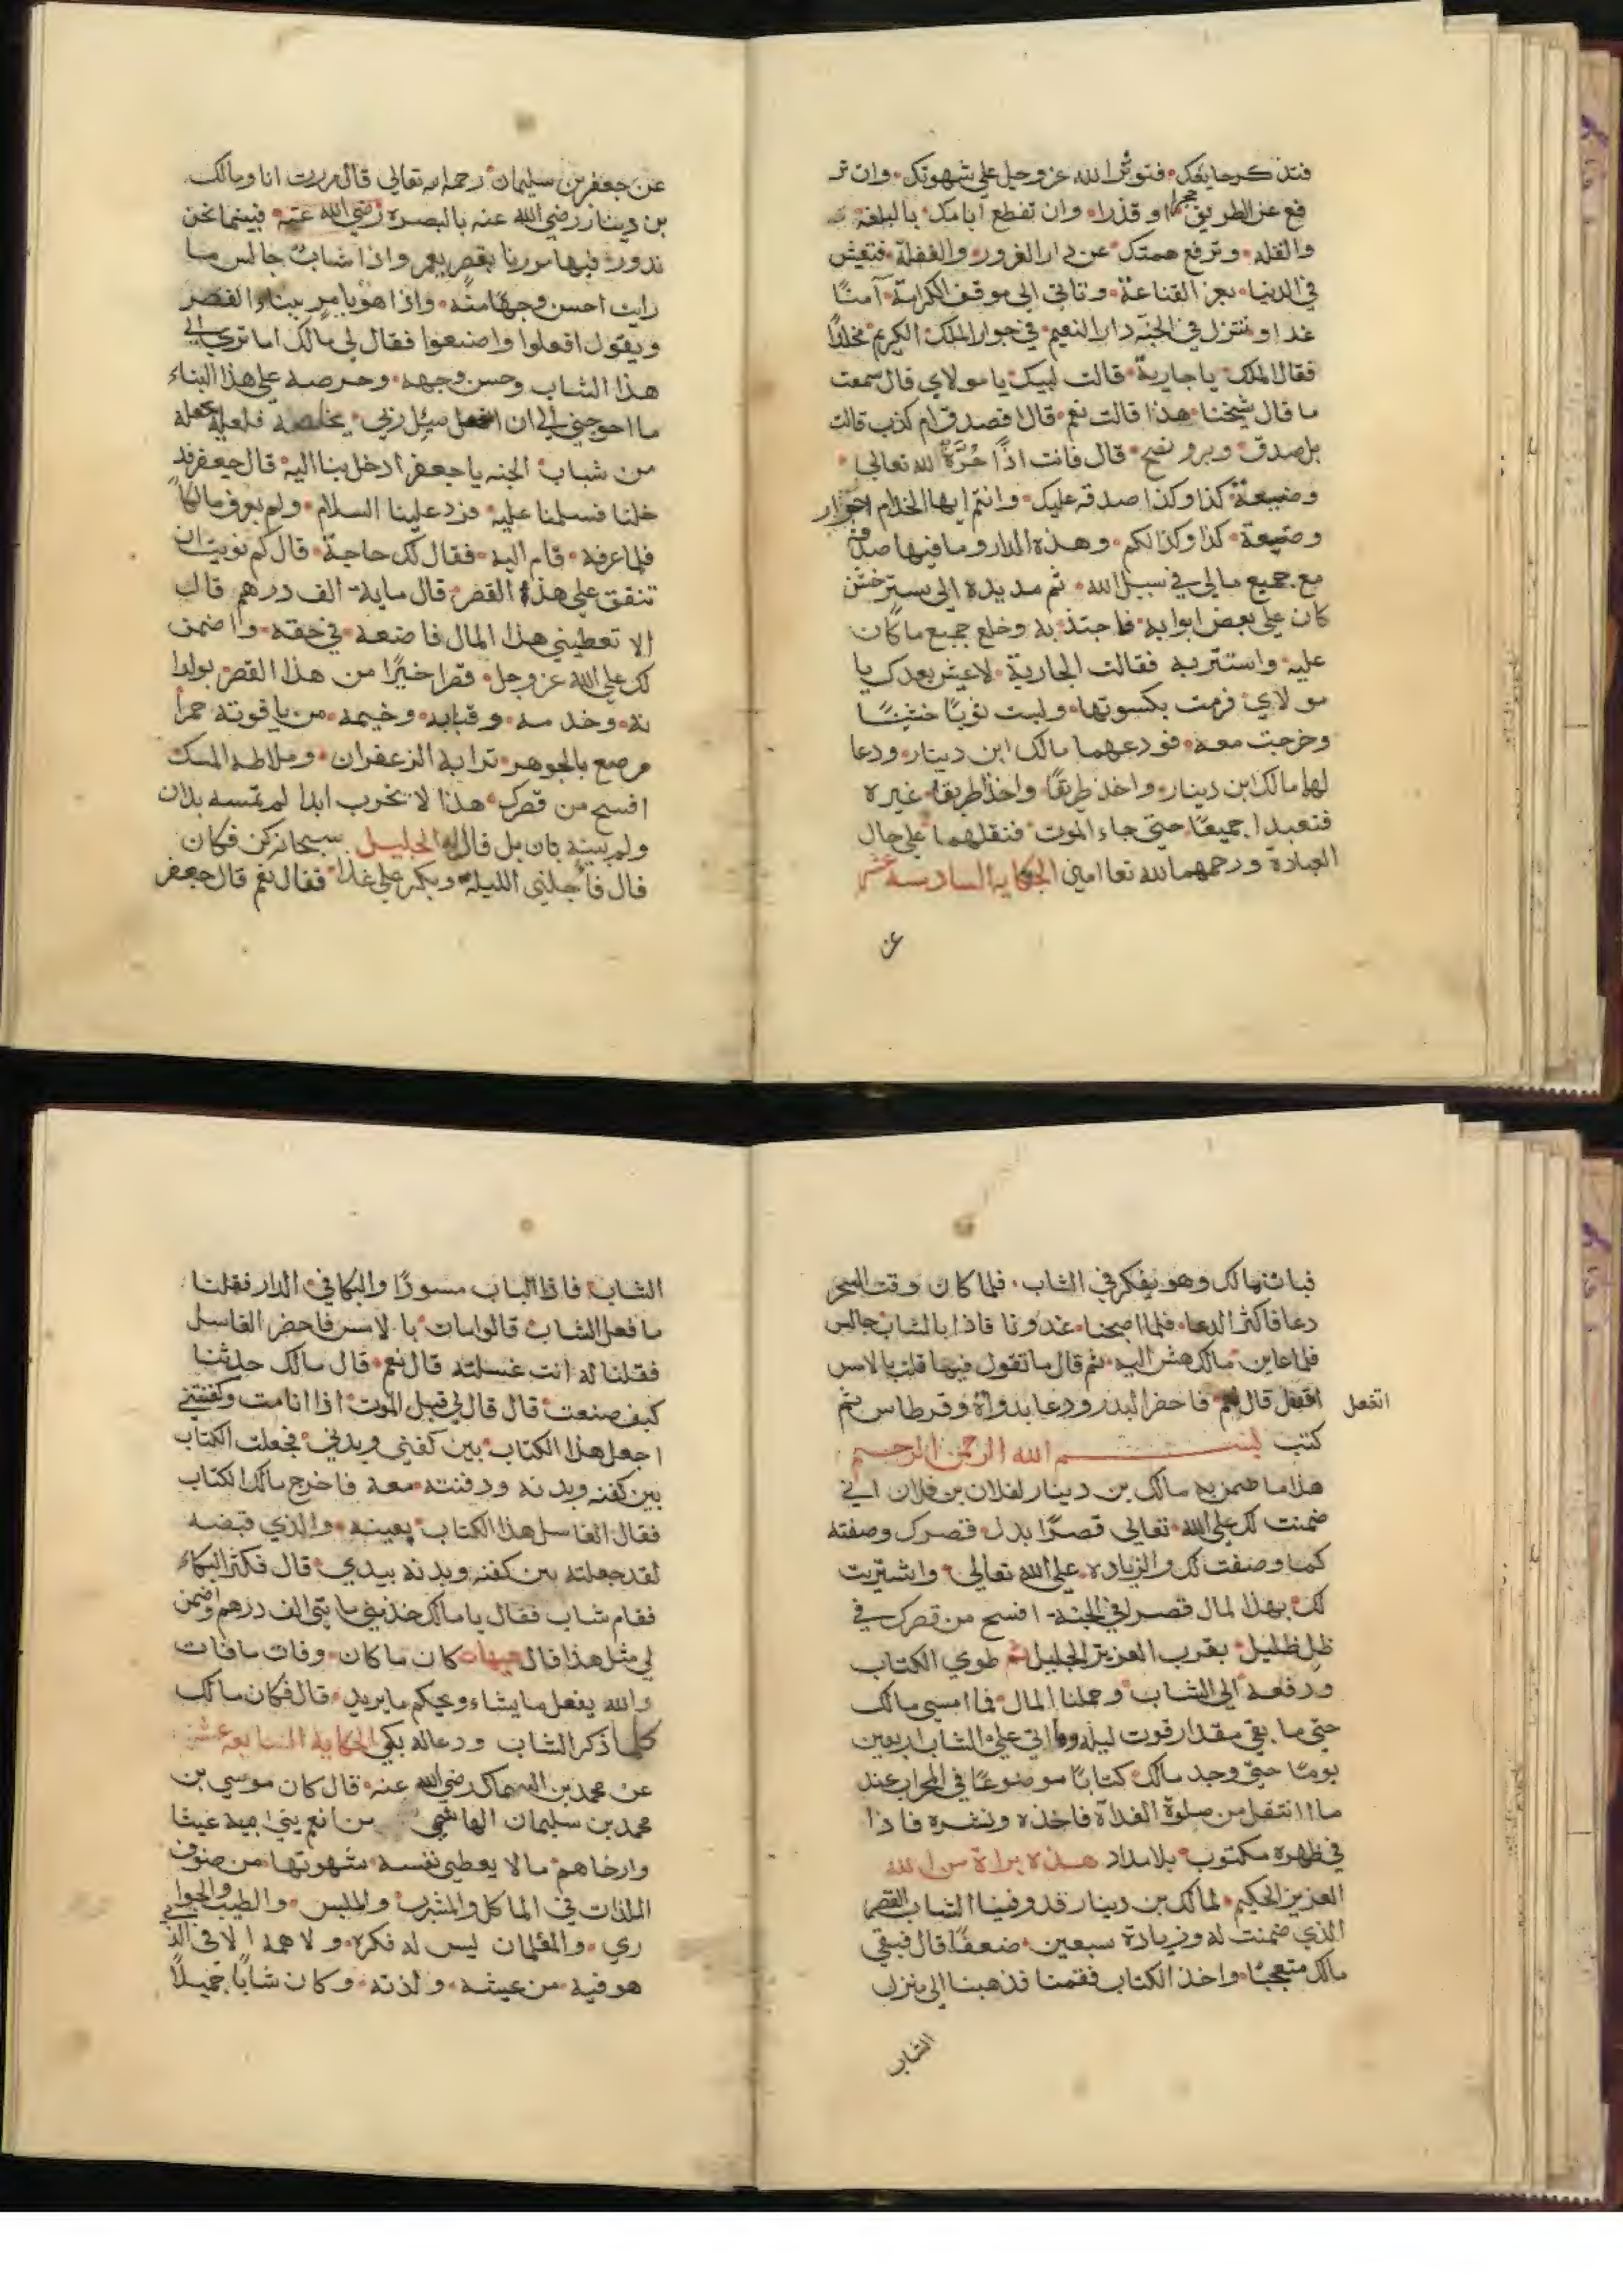 فتذكر ما يفك فتوثر الله عز وجل على شهوتك وان تر
فع عن الطريق حجرا او قذرا وان تقطع ايامك بالبلغة
والقله وترفع همتك عن دار الغرور والغفلة فتعيش
في الدنيا بعز القناعة وتاتي الى موقف الكرامة آمنًا
غدا وتنزل في الجنة دار النعيم في جوار الملك الكريم مخلدًا
فقال الملك يا جارية قالت لبيك يا مولاي قال سمعت
ما قال شيخنا هذا قالت نعم قال افصدق ام كذب قالت
بل صدق وبر ونصح قال فانت اذًا حُرَّةٌ لله تعالى
وضيعة كذا وكذا صدقه عليك وانتم ايها الخدام احرار
وضيعة كذا وكذا لكم وهذه الدار وما فيها صدقة
مع جميع مالي في سبيل الله ثم مد يده الى ستر خشن
كان على بعض ابوابه فاجتذبه وخلع جميع ما كان
عليه واستتر به فقالت الجارية لا عيش بعدك يا
مولاي فرمت بكسوتها ولبست ثوبًا خشنًا
وخرجت معه فودعهما مالك ابن دينار ودعا
لهما مالك ابن دينار واخذ طريقًا واخذا طريقا غيره
فتعبدا جميعًا حتى جاء الموت فنقلهما على حال
العبادة ورحمهما الله تعا امين الحكاية السادسة عشر
عن
عن جعفر بن سليمان رحمه الله تعالى قال مررت انا ومالك
بن دينار رضي الله عنه بالبصره رضي الله عنه فبينما نحن
ندور فيها مررنا بقصر يعمر واذا شابٌ جالس ما
رايت احسن وجهًا منه واذا هو يامر ببناء القصر
ويقول افعلوا واصنعوا فقال لي مالك اما ترى الى
هذا الشاب وحسن وجهه وحرصه على هذا البناء
ما احوجني الى ان اسئل ربي يخلصه فلعله يجعله
من شباب الجنه يا جعفر ادخل بنا اليه قال جعفر فد
خلنا فسلمنا عليه فرد علينا السلام ولم يعرف مالكًا
فلما عرفه قام اليه فقال لك حاجة قال كم نويت ان
تنفق على هذا القصر قال ماية الف درهم قال
الا تعطيني هذا المال فاضعه في حقه واضمن
لك على الله عز وجل قصرا خيرًا من هذا القصر بولدا
نه وخدمه وقبابه وخيمه من ياقوته حمرا
مرصع بالجوهر ترابه الزعفران وملاطه المسك
افسح من قصرك هذا لا يخرب ابدا لم تمسه يدان
ولم يبنيه بان بل قال له الجليل سبحانه كن فكان
قال فاجلني الليلة وبكر علي غدا فقال نعم قال جعفر
فبات مالك وهو يفكر في الشاب فلما كان وقت السحر
دعا فاكثر الدعا فلما اصبحنا غدونا فاذا بالشاب جالس
فلما عاين مالك هش اليه ثم قال ما تقول فيما قلت بالامس
اتفعل
افعل قال نعم فاحضر البدر ودعا بدواة وقرطاس ثم
كتب بسم الله الرحمن الرحيم
هذا ما ضمن به مالك بن دينار لفلان بن فلان اني
ضمنت لك على الله تعالى قصرًا بدل قصرك وصفته
كما وصفت لك والزيادة على الله تعالى واشتريت
لك بهذا المال قصرا في الجنة افسح من قصرك في
ظل ظليل بقرب العزيز الجليل ثم طوي الكتاب
ودفعه الى الشاب وحملنا المال فما امسى مالك
حتى ما بقي مقدار قوت ليله وما اتى على الشاب اربعين
يومًا حتى وجد مالك كتابًا موضوعًا في المحراب عند
ما انتقل من صلوة الغداة فاخذه ونشره فاذا
في ظهره مكتوب بلا مداد هذه براة من الله
العزيز الحكيم لمالك بن دينار قد وفينا الشاب القصر
الذي ضمنت له وزيادة سبعين ضعفًا قال فبقي
مالك متعجبًا واخذ الكتاب فقمنا فذهبنا الى منزل
الشاب
الشاب فاذا الباب مسودًا والبكا في الدار فقلنا
ما فعل الشاب قالوا مات بالامس فاحضر الغاسل
فقلنا له انت غسلته قال نعم قال مالك حدثنا
كيف صنعت قال قال لي قبل الموت اذا انا مت وكفنتني
اجعل هذا الكتاب بين كفني وبدني فجعلت الكتاب
بين كفنه وبدنه ودفنته معه فاخرج مالك الكتاب
فقال الغاسل هذا الكتاب بعينه والذي قبضه
لقد جعلته بين كفنه وبدنه بيدي قال فكثر البكاء
فقام شاب فقال يا مالك خذ مني مايتي الف درهم واضمن
لي مثل هذا قال هيهات كان ما كان وفات ما فات
والله يفعل ما يشاء ويحكم ما يريد قال فكان مالك
كلما ذكر الشاب ودعا له بكى الحكاية السابعة عشر
عن محمد بن السماك رضي الله عنه قال كان موسى بن
محمد بن سليمان الهاشمي من انعم بني امية عيشا
وارخاهم ما لا يعطي نفسه شهوتها من صنوف
اللذات في الماكل والمشرب والملبس والطيب والجوا
ري والغلمان ليس له فكره ولا همه الا في الذي
هو فيه من عيشه ولذته وكان شابًا جميلًا